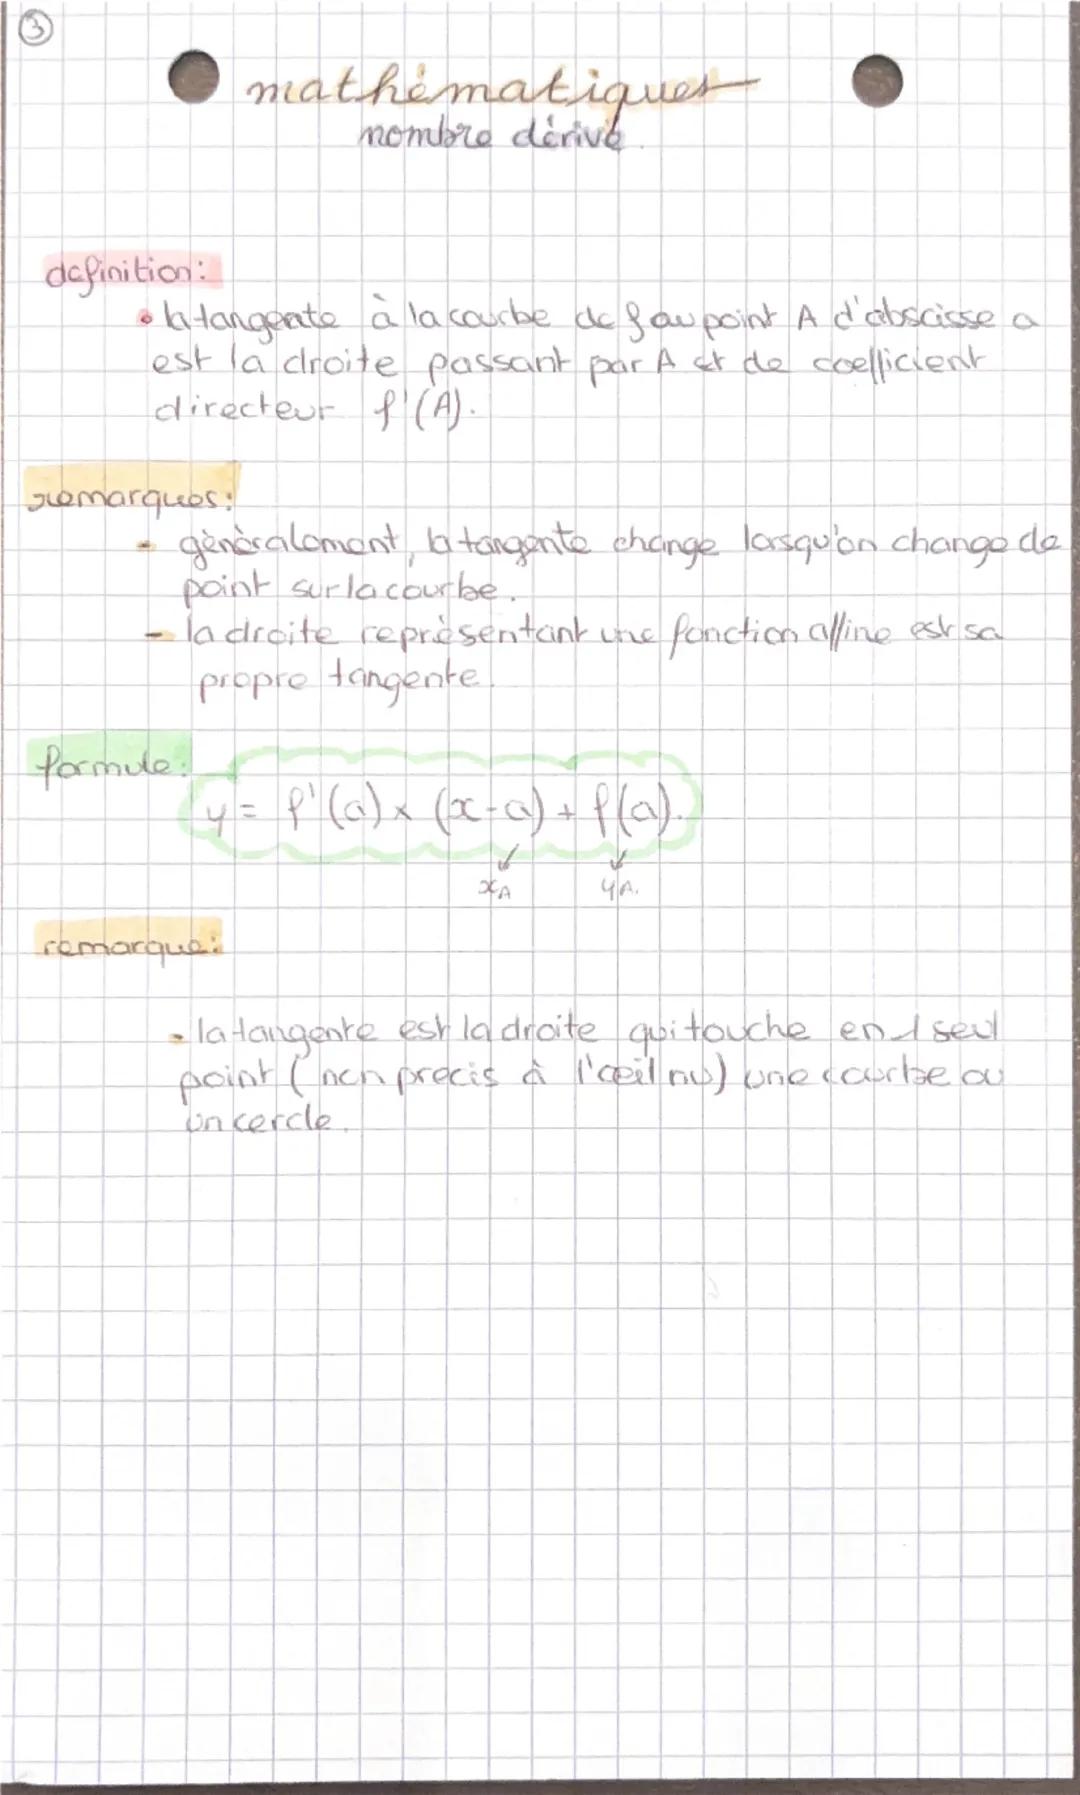 3
mathématiques
nombre dérivé.
definition:
• la tangente à la courbe de f au point A d'abscisse a
est la droite passant par A et de coefficient
directeur f'(A).
remarques:
- généralement, la tangente change lorsqu'on change de
point sur la courbe.
- la droite représentant une fonction affine est sa
propre tangente.
formule:
y = f'(a) x (x-a) + f(a).
xA yA.
remarque:
- la tangente est la droite qui touche en 1 seul
point (non precis à l'œil nu) une courbe ou
un cercle.